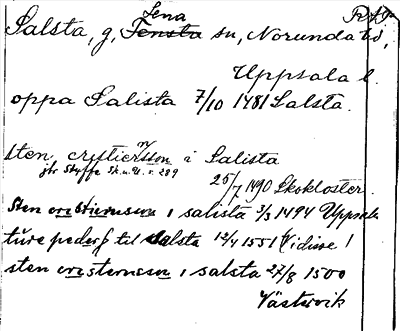 Lena
Salsta, g, Tensta sn, Norunda hd,
Uppsala l.
oppa Salista 7/10 1481 Salsta.
sten cristiernsson i Salista
jfr Styffe Sk. u. U. s. 289
25/7 1490 Skokloster.
Sten cristiernsson i salista 3/3 1494 Uppsala
ture pederß til salsta 12/4 1551 (Vidisse)
sten cristernson i salsta 27/8 1500
Västervik